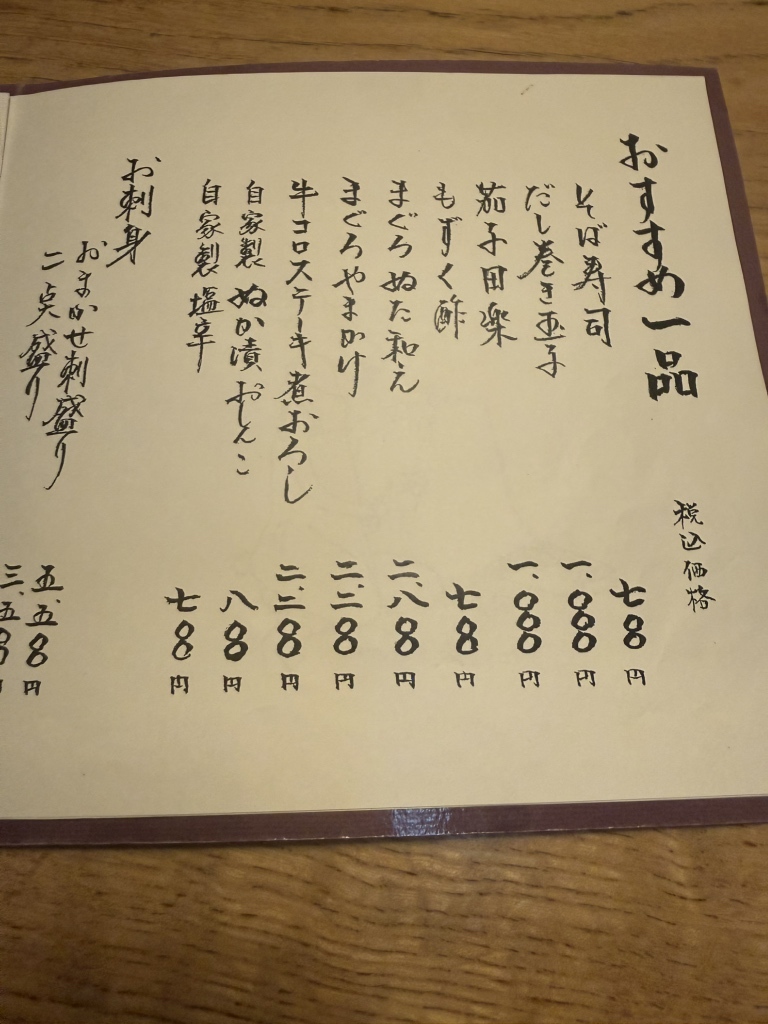 おすすめ一品
税込価格
そば寿司 七〇〇円
だし巻き玉子 一、〇〇〇円
茄子田楽 一、〇〇〇円
もずく酢 七〇〇円
まぐろぬた和え 二、八〇〇円
まぐろやまかけ 二、二〇〇円
牛コロステーキ煮おろし 二、二〇〇円
自家製ぬか漬おしんこ 八〇〇円
自家製塩辛 七〇〇円
お刺身
おまかせ刺盛り 五、五〇〇円
二点盛り 三、五〇〇円